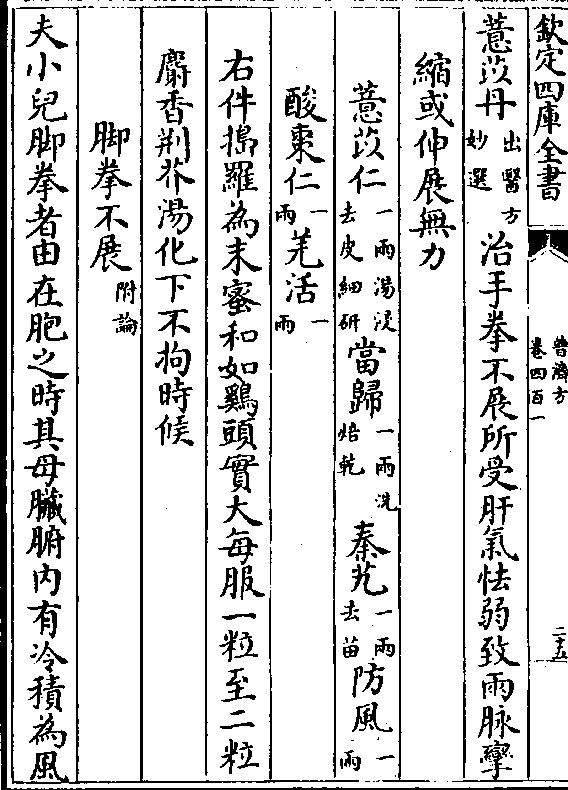 欽定四庫全書
普濟方
卷四百一
二十五
薏苡丹出醫方妙選治手拳不展所受肝氣怯弱致兩脉攣
縮或伸展無力
薏苡仁一兩湯浸去皮細研當歸一兩洗焙乾秦艽一兩去苗防風一兩
酸棗仁一兩羌活一兩
右件搗羅為末蜜和如鷄頭實大每服一粒至二粒
麝香荆芥湯化下不拘時候
脚拳不展附論
夫小兒脚拳者由在胞之時其母臟腑内有冷積為風